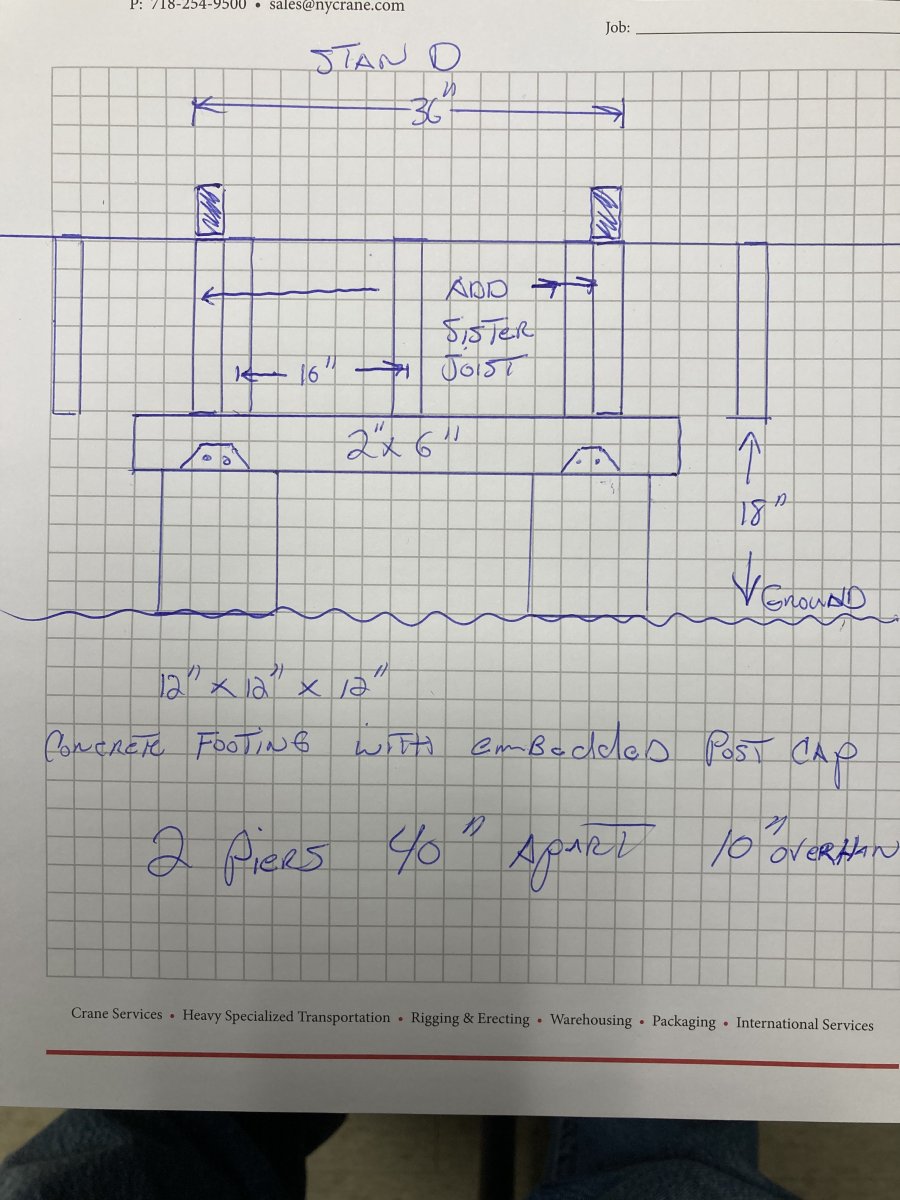 P: 718-254-9500 • sales@nycrane.com
Job:
STAND
36"
ADD
SISTER
JOIST
16"
2"x 6"
18"
GROUND
12" x 12" x 12"
CONCRETE FOOTING WITH EMBEDDED POST CAP
2 PIERS 40" APART 10" OVERHAN
Crane Services • Heavy Specialized Transportation • Rigging & Erecting • Warehousing • Packaging • International Services